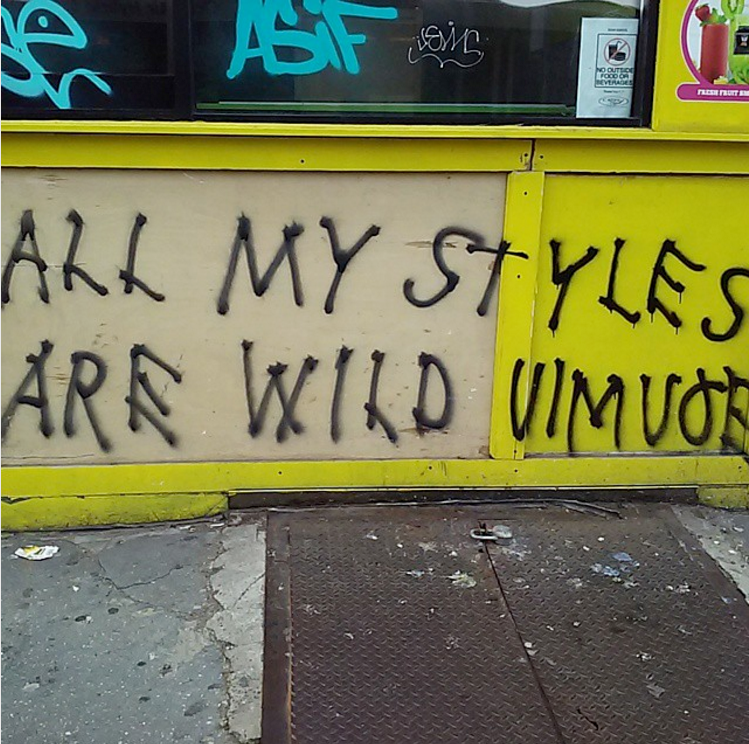 ASiF
NO OUTSIDE
FOOD OR
BEVERAGES
FRESH FRUIT
ALL MY STYLES
ARE WILD